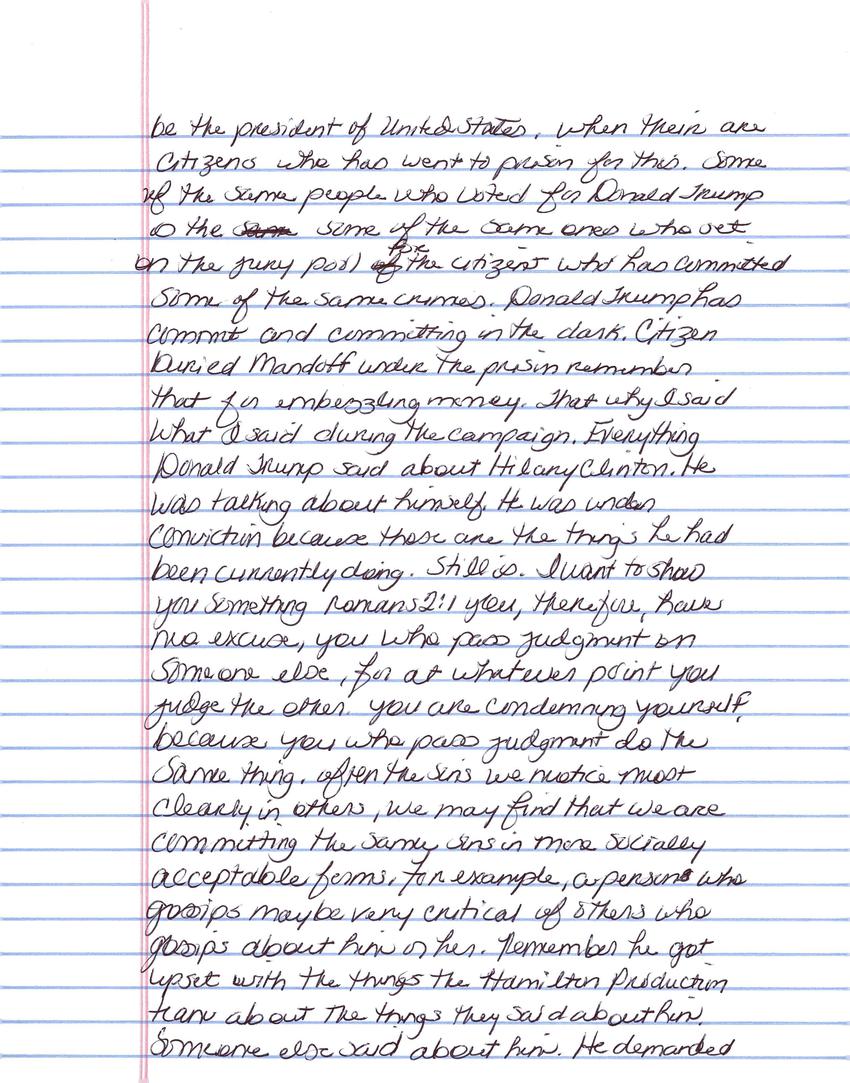 be the president of United States, when their are
Citizens who has went to prison for this. Some
of the same people who voted for Donald Trump
is the some of the same ones who set
on the jury pool for the citizens who has committed
Some of the same crimes. Donald Trump has
commit and committing in the dark. Citizen
buried Mandoff under the prison remember
that for embezzling money. That why I said
what I said during the campaign. Everything
Donald Trump said about Hilary Clinton. He
was talking about himself. He was under
conviction because those are the things he had
been currently doing. Still is. I want to show
you something Romans 2:1 you, therefore, have
no excuse, you who pass judgment on
someone else, for at whatever point you
judge the other. you are condemning yourself,
because you who pass judgment do the
Same thing. often the sins we notice most
clearly in others, we may find that we are
committing the same sins in more socially
acceptable forms. For example, a person who
gossips maybe very critical of others who
gossips about him or her. Remember he got
upset with the things the Hamilton Production
team about the things they said about him.
Someone else said about him. He demanded